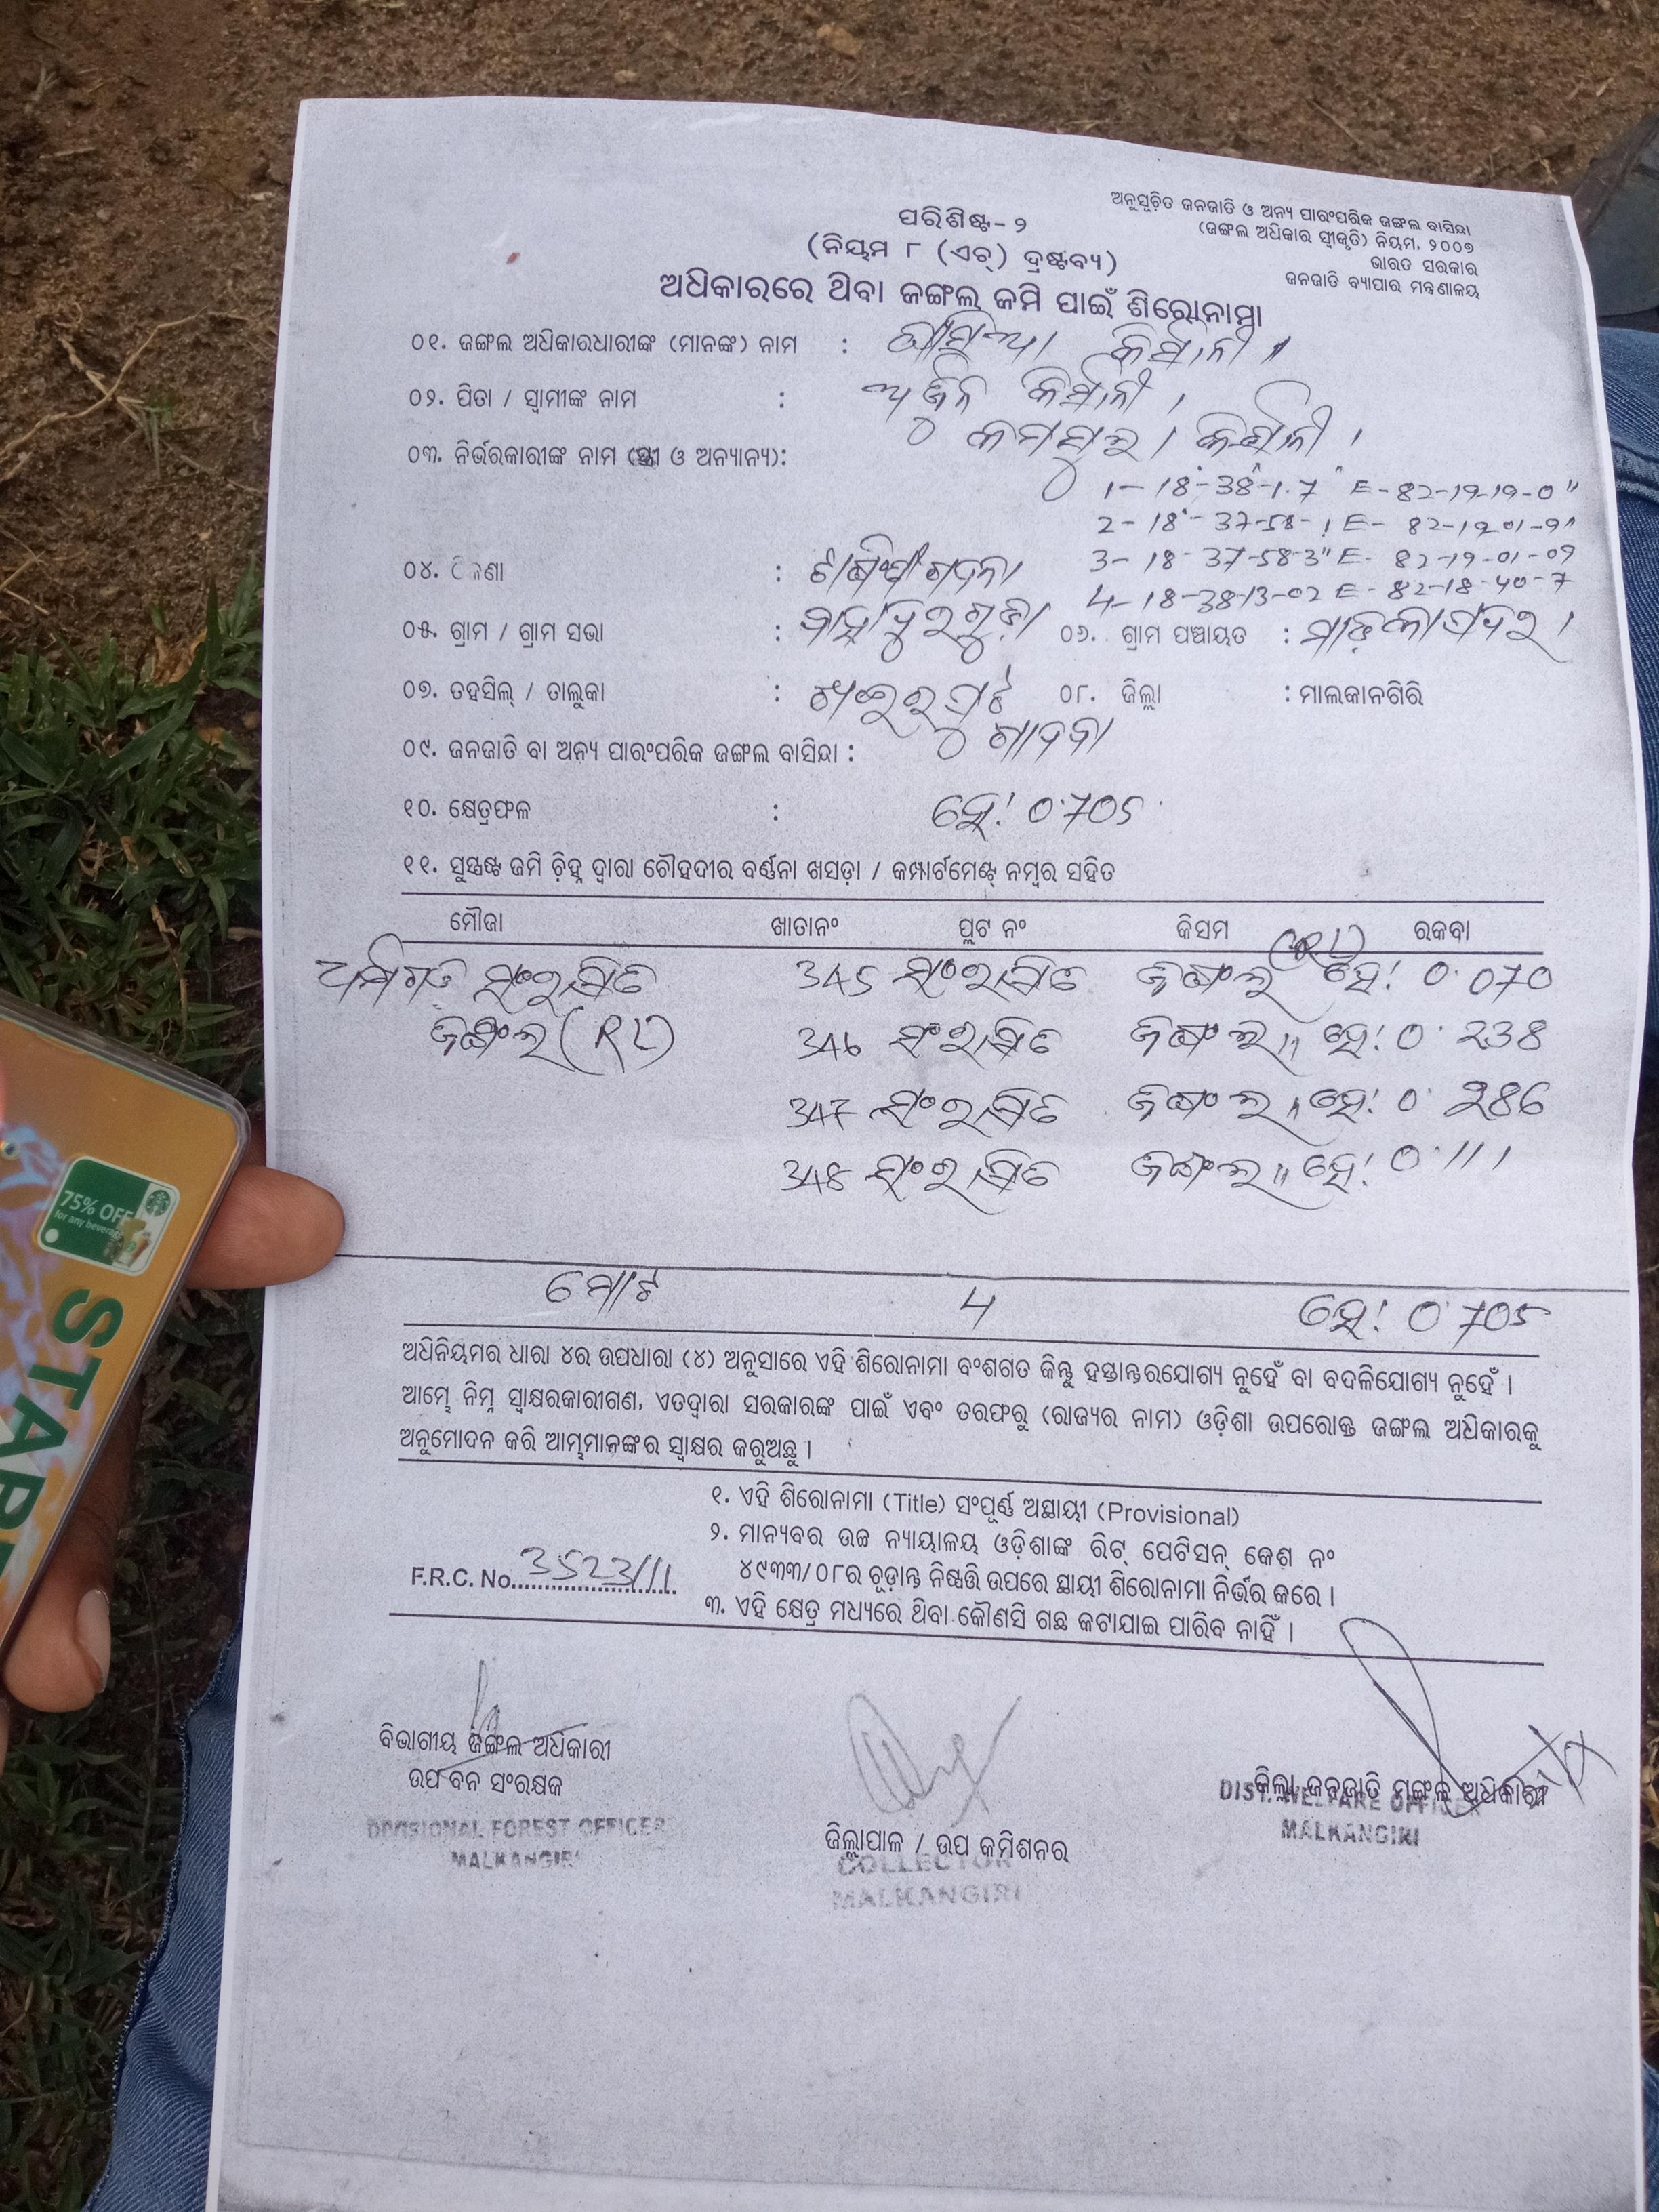 ଅନୁସୂଚିତ ଜନଜାତି ଓ ଅନ୍ୟ ପାରଂପରିକ ଜଙ୍ଗଲ ବାସିନ୍ଦା
(ଜଙ୍ଗଲ ଅଧିକାର ସ୍ୱୀକୃତି) ନିୟମ, ୨୦୦୭
ଭାରତ ସରକାର
ଜନଜାତି ବ୍ୟାପାର ମନ୍ତ୍ରଣାଳୟ
ପରିଶିଷ୍ଟ-୨
(ନିୟମ ୮ (ଏଚ୍) ଦ୍ରଷ୍ଟବ୍ୟ)
ଅଧିକାରରେ ଥିବା ଜଙ୍ଗଲ ଜମି ପାଇଁ ଶିରୋନାମା
୦୧. ଜଙ୍ଗଲ ଅଧିକାରଧାରୀଙ୍କ (ମାନଙ୍କ) ନାମ :
୦୨. ପିତା / ସ୍ୱାମୀଙ୍କ ନାମ :
୦୩. ନିର୍ଭରକାରୀଙ୍କ ନାମ (ସ୍ତ୍ରୀ ଓ ଅନ୍ୟାନ୍ୟ):
1- 18-38-1.7" E-82-19-19-0"
2-18-37-58-1 E- 82-19-01-9"
3-18-37-58-3" E- 82-19-01-09
୦୪. ଠିକଣା :
4-18-38-13-02 E-82-18-40-7
୦୫. ଗ୍ରାମ / ଗ୍ରାମ ସଭା : ୦୬. ଗ୍ରାମ ପଞ୍ଚାୟତ :
୦୭. ତହସିଲ୍ / ତାଲୁକା : ୦୮. ଜିଲ୍ଲା : ମାଲକାନଗିରି
୦୯. ଜନଜାତି ବା ଅନ୍ୟ ପାରଂପରିକ ଜଙ୍ଗଲ ବାସିନ୍ଦା :
୧୦. କ୍ଷେତ୍ରଫଳ : ହେ! 0.705
୧୧. ସୁସ୍ପଷ୍ଟ ଜମି ଚିହ୍ନ ଦ୍ୱାରା ଚୌହଦୀର ବର୍ଣ୍ଣନା ଖସଡ଼ା / କମ୍ପାର୍ଟମେଣ୍ଟ୍ ନମ୍ବର ସହିତ
ମୌଜା ଖାତାନଂ ପ୍ଲଟ ନଂ କିସମ ରକବା
345 ସଂରକ୍ଷିତ ଜଙ୍ଗଲ ହେ! 0.070
ଜଙ୍ଗଲ 346 ସଂରକ୍ଷିତ ଜଙ୍ଗଲ " ହେ! 0.238
347 ସଂରକ୍ଷିତ ଜଙ୍ଗଲ " ହେ! 0.286
348 ସଂରକ୍ଷିତ ଜଙ୍ଗଲ " ହେ! 0.111
ମୋଟ 4 ହେ! 0.705
ଅଧିନିୟମର ଧାରା ୪ର ଉପଧାରା (୪) ଅନୁସାରେ ଏହି ଶିରୋନାମା ବଂଶଗତ କିନ୍ତୁ ହସ୍ତାନ୍ତରଯୋଗ୍ୟ ନୁହେଁ ବା ବଦଳିଯୋଗ୍ୟ ନୁହେଁ ।
ଆମ୍ଭେ ନିମ୍ନ ସ୍ୱାକ୍ଷରକାରୀଗଣ, ଏତଦ୍ୱାରା ସରକାରଙ୍କ ପାଇଁ ଏବଂ ତରଫରୁ (ରାଜ୍ୟର ନାମ) ଓଡ଼ିଶା ଉପରୋକ୍ତ ଜଙ୍ଗଲ ଅଧିକାରକୁ
ଅନୁମୋଦନ କରି ଆମ୍ଭମାନଙ୍କର ସ୍ୱାକ୍ଷର କରୁଅଛୁ ।
୧. ଏହି ଶିରୋନାମା (Title) ସଂପୂର୍ଣ୍ଣ ଅସ୍ଥାୟୀ (Provisional)
୨. ମାନ୍ୟବର ଉଚ୍ଚ ନ୍ୟାୟାଳୟ ଓଡ଼ିଶାଙ୍କ ରିଟ୍ ପେଟିସନ୍ କେଶ ନଂ
୪୯୩୩/୦୮ର ଚୂଡ଼ାନ୍ତ ନିଷ୍ପତ୍ତି ଉପରେ ସ୍ଥାୟୀ ଶିରୋନାମା ନିର୍ଭର କରେ ।
F.R.C. No. 3523/11
୩. ଏହି କ୍ଷେତ୍ର ମଧ୍ୟରେ ଥିବା କୌଣସି ଗଛ କଟାଯାଇ ପାରିବ ନାହିଁ ।
ବିଭାଗୀୟ ଜଙ୍ଗଲ ଅଧିକାରୀ
ଉପ ବନ ସଂରକ୍ଷକ
DIVISIONAL FOREST OFFICER
MALKANGIRI
ଜିଲ୍ଲାପାଳ / ଉପ କମିଶନର
COLLECTOR
MALKANGIRI
ଜିଲ୍ଲା ଜନଜାତି ମଙ୍ଗଳ ଅଧିକାରୀ
DIST. WELFARE OFFICER
MALKANGIRI
75% OFF
for any beverage
STAR